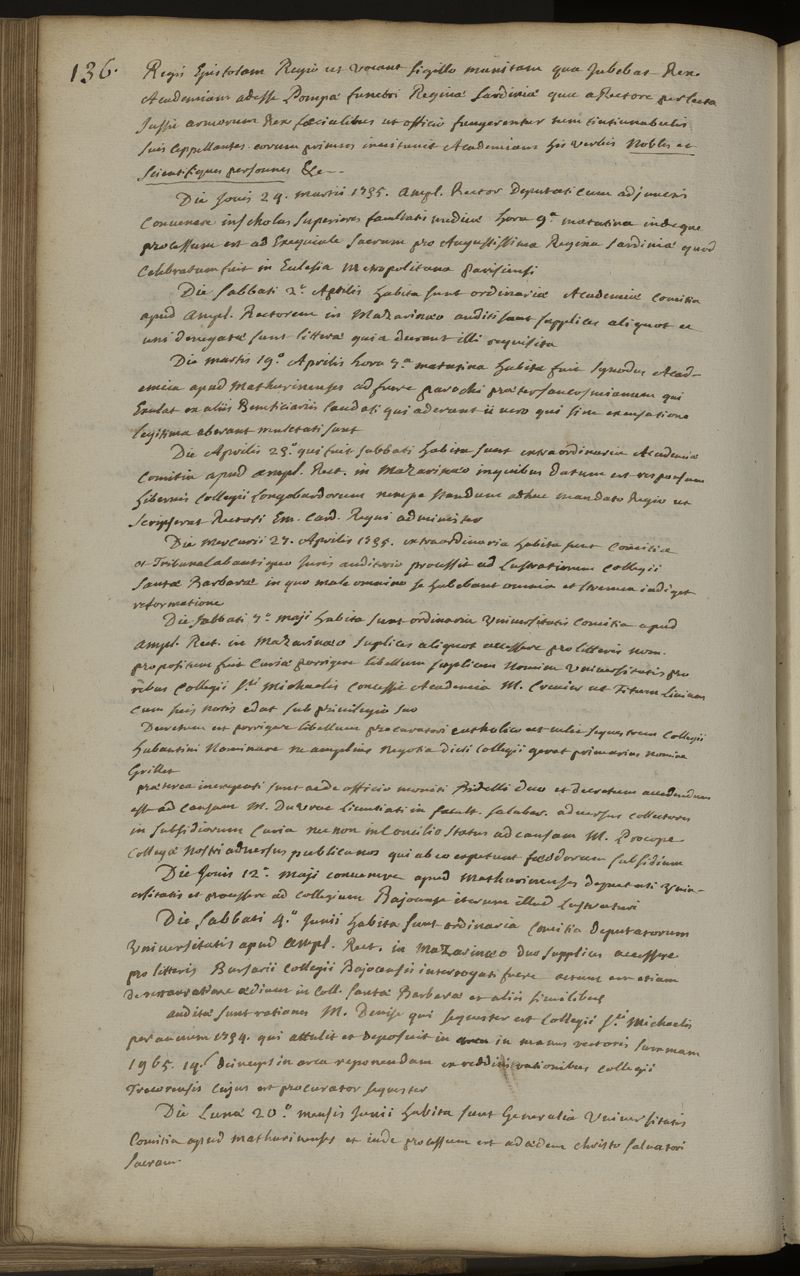 136.
Regis Epistolam Regio ut vocant sigillo munitam qua Jubebat Rex
Academiam adesse Pompæ funebri Reginæ Sardiniæ qua a Rectore perlecta
Jussu armorum Rex fæcialibus ut officio fungerentur tum tintinnabulis
suis appellantes. eorum primus invitavit Academiam his verbis Nobles et
scientifiques personnes &c--
Die Jovis 24. martii 1735. ampl. Rector Deputati cum adjunctis
Convenere in scholas superiores facultatis medicæ hora 9.a matutina indeque
processum est ad Exequiale sacrum pro Augustissima Regina Sardiniæ quod
Celebratum fuit in Ecclesia Metropolitana parisiensi
Die Sabbati 2.° Aprilis habita sunt ordinaria Academiæ Comitia
apud ampl. Rectorem in Mazarinæo auditi sunt supplices aliquot et
uni denegatæ sunt litteræ quia deerant illi requisita
Die martis 19.° Aprilis hora 7.a matutina habita fuit synodus Acad-
emica apud Mathurinenses adfuere parochi præter sancosmianum qui
Exulat ex aliis Beneficiariis laudati qui aderant ii vero qui sine excusatione
legitima aberant mulctati sunt
Die Aprilis 23.° qui fuit sabbati habita sunt extraordinaria Academiæ
Comitia apud ampl. Rect. in Mazarinæo in quibus datum est responsum
hibernis Collegii Longobardorum nempe standum adhuc mandato Regio ut
scripserat Rectori Em. Card. Regni administer
Die Mercurii 27. Aprilis 1735. extraordinaria habita sunt Comitia
et Tribunal ab antiquo Juris auditorio processit ad Lustrationem Collegii
Sanctæ Barbaræ in quo male omnino se habebant omnia et strenua indiget
reformatione
Die Sabbati 7.° maji habita sunt ordinaria Universitatis Comitia apud
ampl. Rect. in Mazarinæo suplices aliquot accessere pro litteris nom.
propositum fuit Curiæ porrigere libellum suplicem Nomine Universitatis pro
rebus Collegii S.ti Michaelis Concessit Academia M. Crevier ut Titum Livium
cum suis notis edat sub privilegio suo
Decretum est porrigere libellum procuratori catholico ut velit sequestrem Collegii
hubantini Nominare ne amplius Negotia dicti Collegii gerat primarius nomine
Grillet
præterea increpati sunt ac de officio moniti Bidelli duo et decretum accedendum
est ad Causam M. Duvrac Licentiati in facult. salubr. adversus collectores
in subsidiorum Curia nec non in Concilio status ad causam M. Procope
Collegæ Nostri adversus publicanos qui ab eo expetunt fæodorum subsidium
Die Jovis 12.° maji convenere apud Mathurinenses deputati Univer-
ersitatis et processere ad collegium Bajocense iterum illud Lustraturi
Die Sabbati 4.° Junii habita sunt ordinaria Comitia deputatorum
Universitatis apud ampl. Rect. in Mazarinæo duo supplices accessere
pro litteris Bursarii collegii Bajocensis interrogati fuere actum est etiam
de restauratione ædium in Coll. sanctæ Barbaræ et aliis similibus
auditæ sunt rationes M. Denise qui sequester est Collegii S.ti Michaelis
per annum 1734. qui attulit et deposuit in manus rectoris summam
1965. 19.s deinceps in arca reponendam ex redditis rationibus collegii
Trecorensis cujus est procurator sequester
Die Lunæ 20.° mensis Junii habita sunt Generalia Universitatis
Comitia apud mathurinenses et inde processum est ad ædem christo salvatori
sacram.